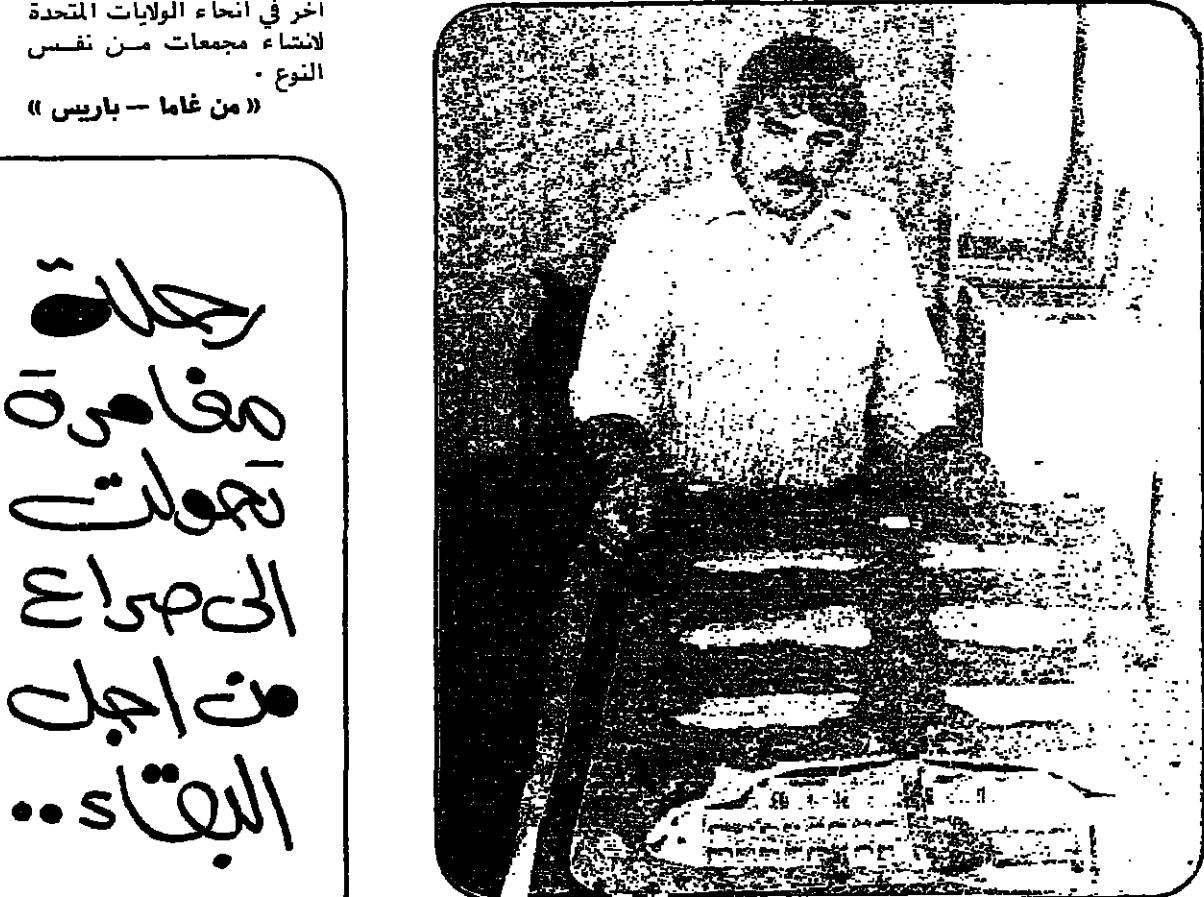 آخر في أنحاء الولايات المتحدة
لانشاء مجمعات مـن نفـس
النوع ٠
« من غاما — باريس »
رحلة
مغامرة
تحولت
الى صراع
من اجل
البقاء ..